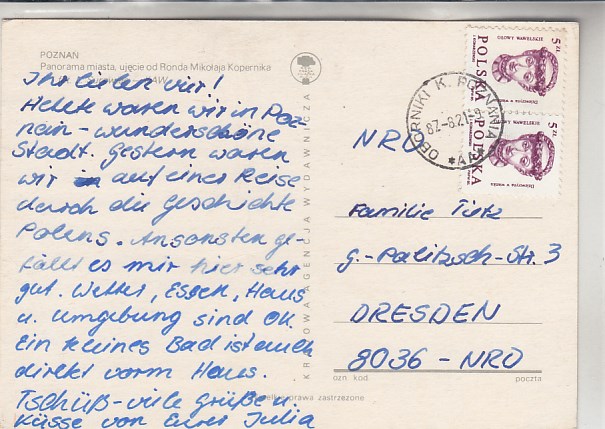 POZNAŃ
Panorama miasta, ujęcie od Ronda Mikołaja Kopernika
Ihr lieben vier!
Heute waren wir in Poz-
nan - wunderschöne
Stadt. Gestern waren
wir auf einer Reise
durch die Geschichte
Polens. Ansonsten ge-
fällt es mir hier sehr
gut. Wetter, Essen, Haus
u. Umgebung sind OK.
Ein kleines Bad ist auch
direkt vorm Haus.
Tschüß - viele Grüße u.
Küsse von Eurer Julia
KRAJOWA AGENCJA WYDAWNICZA
5 ZŁ
POLSKA
5 ZŁ
POLSKA
OBORNIKI K. POZNANIA
87-8.21-9
*AA*
NRD
Familie Tietz
G.-Palitzsch-Str. 3
DRESDEN
8036 - NRD
ozn kod
poczta
prawa zastrzeżone